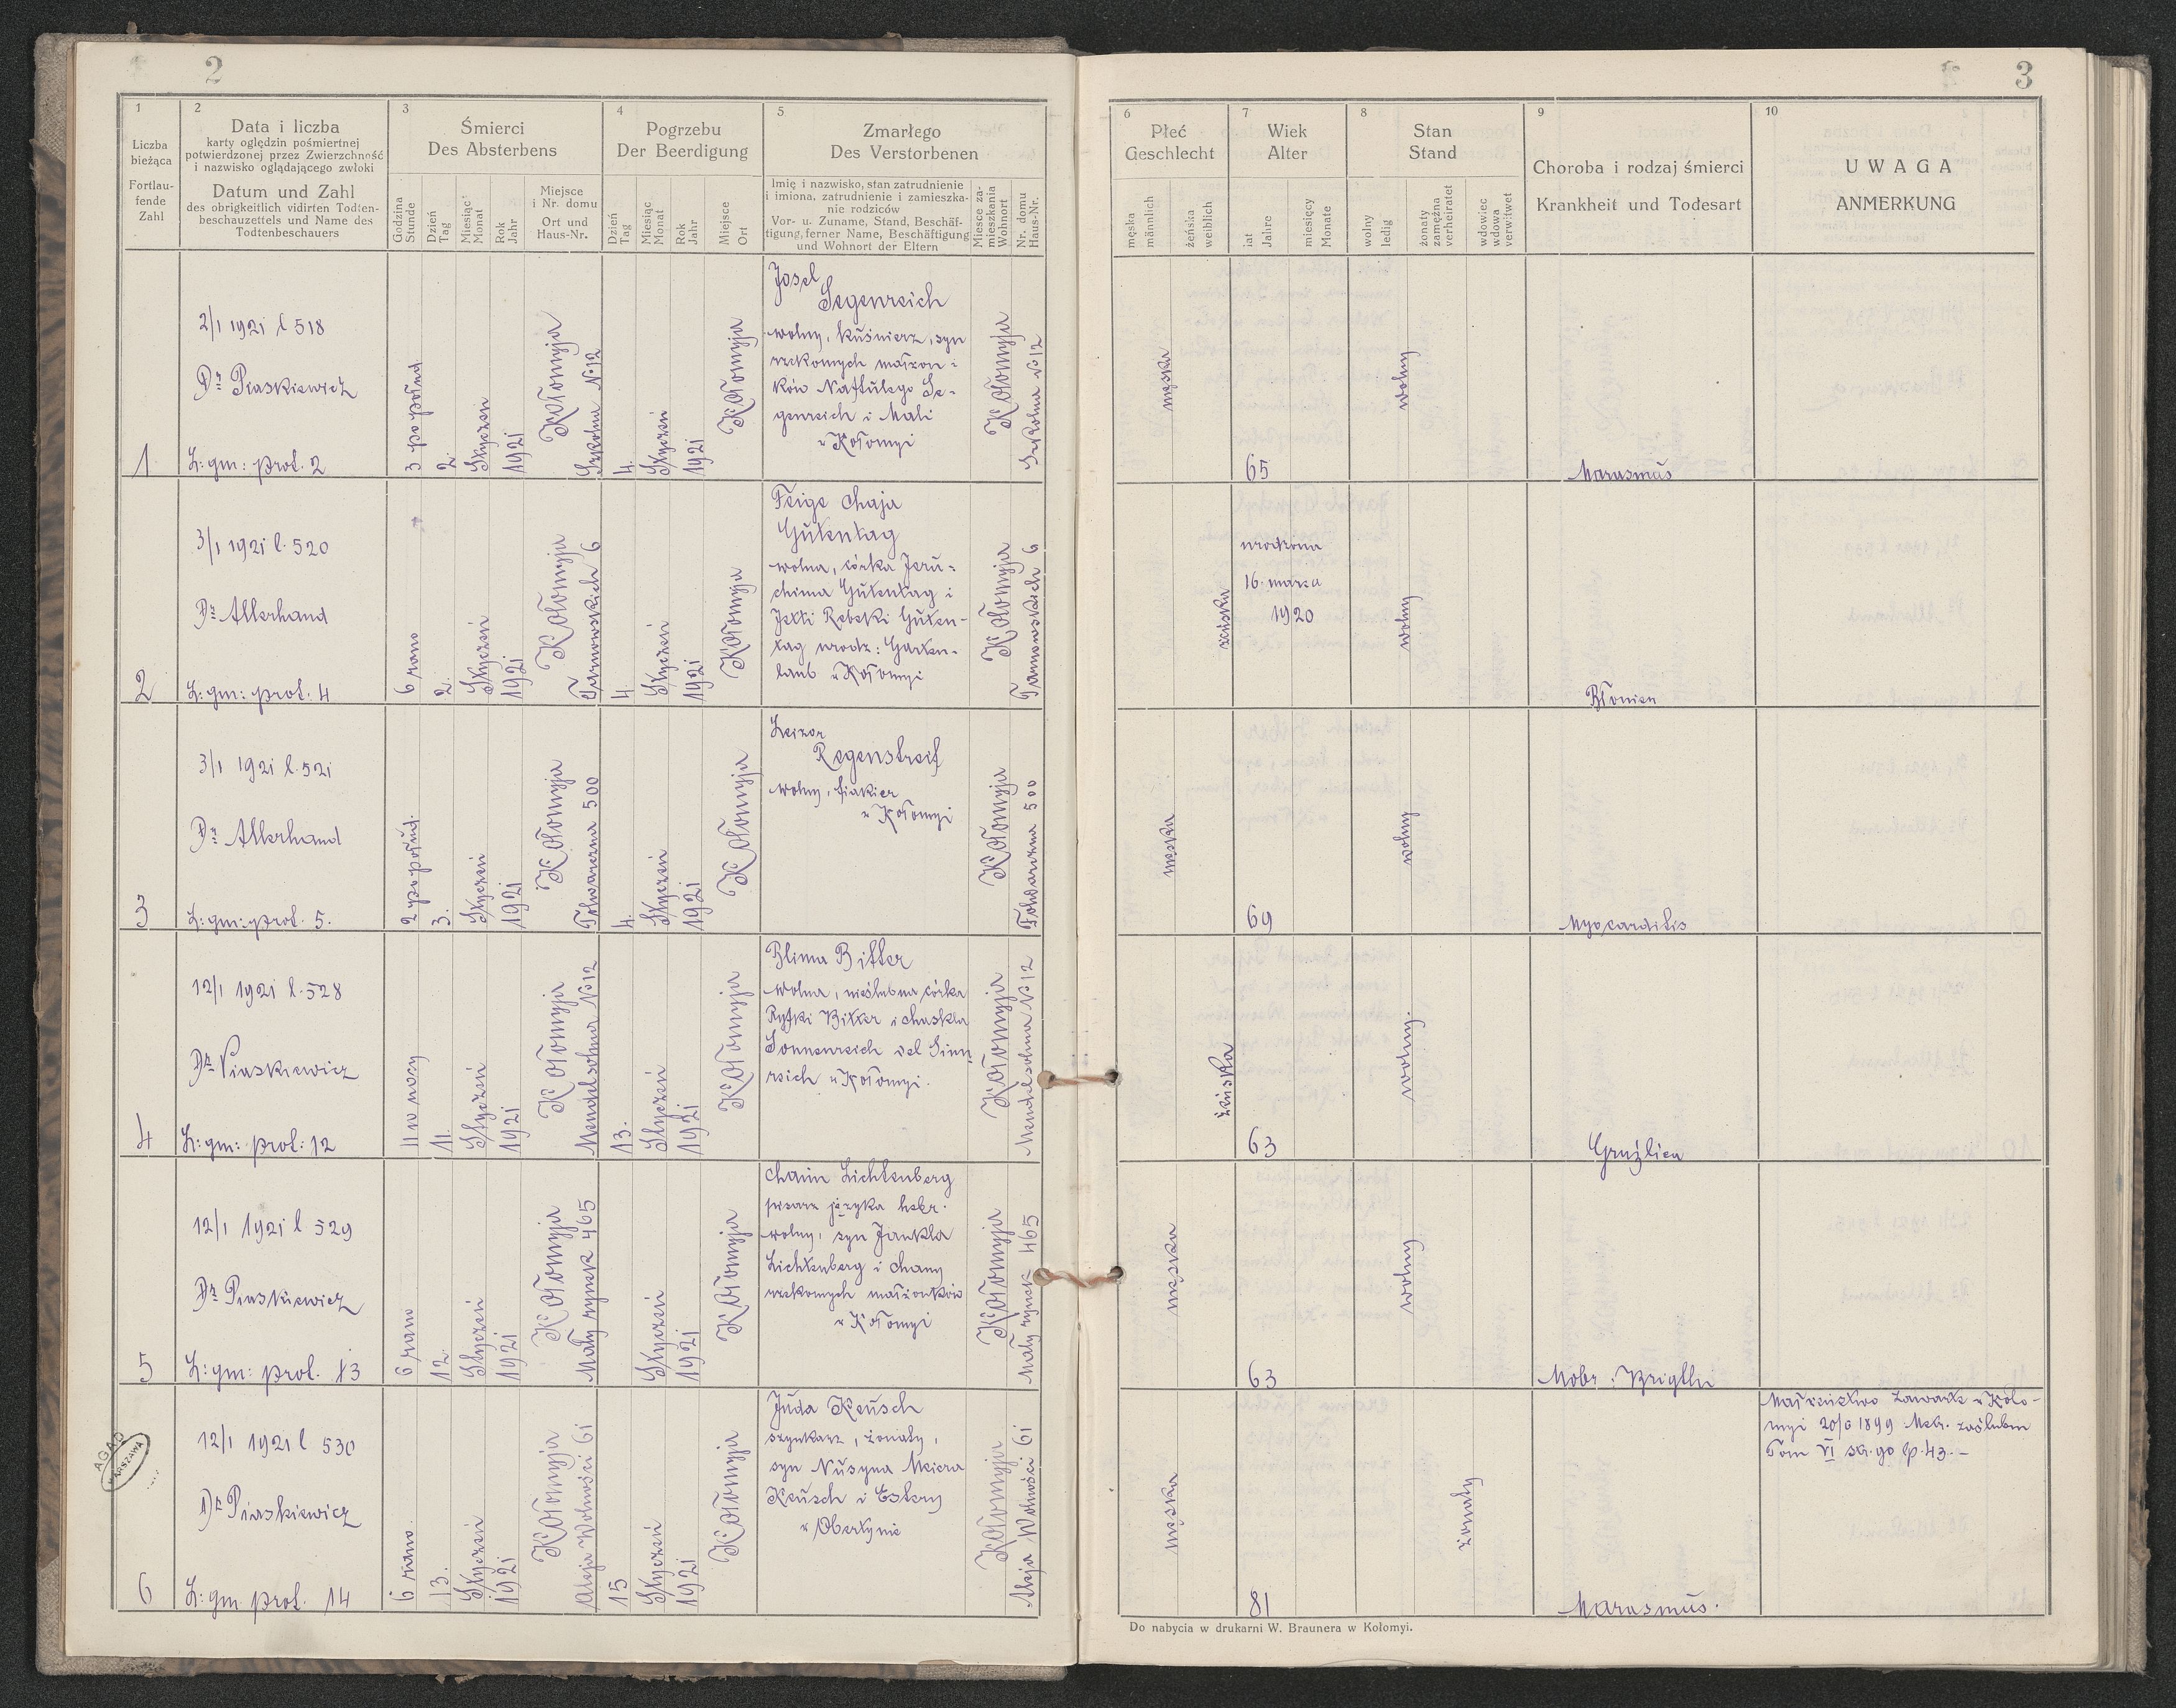 2
3
1
Liczba
bieżąca
Fortlau-
fende
Zahl
2
Data i liczba
karty oględzin pośmiertnej
potwierdzonej przez Zwierzchność
i nazwisko oglądającego zwłoki
Datum und Zahl
des obrigkeitlich vidirten Todten-
beschauzettels und Name des
Todtenbeschauers
3
Śmierci
Des Absterbens
Godzina
Stunde
Dzień
Tag
Miesiąc
Monat
Rok
Jahr
Miejsce
i Nr. domu
Ort und
Haus-Nr.
4
Pogrzebu
Der Beerdigung
Dzień
Tag
Miesiąc
Monat
Rok
Jahr
Miejsce
Ort
5
Zmarłego
Des Verstorbenen
Imię i nazwisko, stan zatrudnienie
i imiona, zatrudnienie i zamieszka-
nie rodziców
Vor- u. Zuname, Stand, Beschäf-
tigung, ferner Name, Beschäftigung
und Wohnort der Eltern
Miesce za-
mieszkania
Wohnort
Nr. domu
Haus-Nr.
6
Płeć
Geschlecht
męska
männlich
żeńska
weiblich
7
Wiek
Alter
lat
Jahre
miesięcy
Monate
8
Stan
Stand
wolny
ledig
żonaty
zamężna
verheiratet
wdowiec
wdowa
verwitwet
9
Choroba i rodzaj śmierci
Krankheit und Todesart
10
UWAGA
ANMERKUNG
1
2/1 1921 l 518
Dr Piaskiewicz
L: gm: prot. 2
3 po połud.
2.
Styczeń
1921
Kołomyja
Szkolna No 12
4.
Styczeń
1921
Kołomyja
Josel
Segenreich
wolny, kuśnierz, syn
rzekomych małżon-
ków Naftulego Se-
genreich i Mali
z Kołomyi
Kołomyja
Szkolna No 12
męska
65
wolny
Marasmus
2
3/1 1921 l. 520
Dr Allerhand
L: gm: prot. 4
6 rano
2.
Styczeń
1921
Kołomyja
Tarnowskich 6
4.
Styczeń
1921
Kołomyja
Feige Chaja
Gutentag
wolna, córka Jeru-
chima Gutentag i
Jetti Rebeki Guten-
tag urodz: Garten-
laub z Kołomyi
Kołomyja
Tarnowskich 6
żeńska
urodzona
16. marca
1920
wolny
Błonica
3
3/1 1921 l. 521
Dr Allerhand
L: gm: prot. 5.
2 po połud.
3.
Styczeń
1921
Kołomyja
Folwarczna 500
4.
Styczeń
1921
Kołomyja
Leizor
Regenstreif
wolny, fiakier
z Kołomyi
Kołomyja
Folwarczna 500
męska
69
wolny
Myocarditis
4
12/1 1921 l. 528
Dr Piaskiewicz
L: gm: prot: 12
11 w nocy
11.
Styczeń
1921
Kołomyja
Mendelsohna No 12
13.
Styczeń
1921
Kołomyja
Blima Bitter
wolna, nieślubna córka
Ryfki Bitter i Chaskla
Sonnenreich vel Sinn-
reich z Kołomyi.
Kołomyja
Mendelsohna No 12
żeńska
63
wolny.
Gruźlica
5
12/1 1921 l 529
Dr Piaskiewicz
L: gm: prot. 13
6 rano
12.
Styczeń
1921
Kołomyja
Mały rynek 465
Styczeń
1921
Kołomyja
Chaim Lichtenberg
pisarz języka hebr.
wolny, syn Jankla
Lichtenberg i Chany
rzekomych małżonków
z Kołomyi
Kołomyja
Mały rynek 465
męska
63
wolny
Mobr: Brigthi
6
12/1 1921 l 530
Dr Piaskiewicz
L: gm. prot. 14
6 rano.
13.
Styczeń
1921
Kołomyja
Aleja Wolności 61
15
Styczeń
1921
Kołomyja
Juda Keusch
szynkarz, żonaty,
syn Nusyna Meiera
Keusch i Estery
z Obertynie
Kołomyja
Aleja Wolności 61
męska
81
żonaty
Marasmus.
Małżeństwo zawarte w Koło-
myi 20/6 1899 Metr. zaślubin
Tom VI str. 90 lp. 43. –
AGAD
WARSZAWA
Do nabycia w drukarni W. Braunera w Kołomyi.